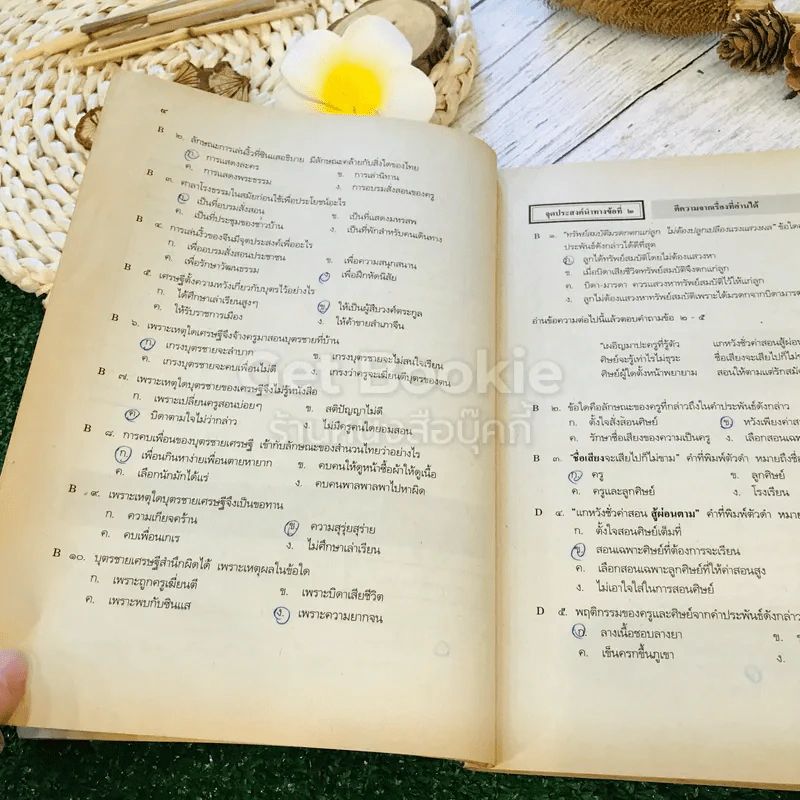 ๔
B ๒. ลักษณะการเล่นงิ้วที่ซินแสอธิบาย มีลักษณะคล้ายกับสิ่งใดของไทย
ก. การแสดงละคร ข. การเล่านิทาน
ค. การแสดงพระธรรม ง. การอบรมสั่งสอนของครู
B ๓. ศาลาโรงธรรมในสมัยก่อนใช้เพื่อประโยชน์อะไร
ก. เป็นที่อบรมสั่งสอน ข. เป็นที่แสดงมหรสพ
ค. เป็นที่ประชุมของชาวบ้าน ง. เป็นที่พักสำหรับคนเดินทาง
B ๔. การเล่นงิ้วของจีนมีจุดประสงค์เพื่ออะไร
ก. เพื่ออบรมสั่งสอนประชาชน ข. เพื่อความสนุกสนาน
ค. เพื่อรักษาวัฒนธรรม ง. เพื่อฝึกหัดนิสัย
B ๕. เศรษฐีตั้งความหวังเกี่ยวกับบุตรไว้อย่างไร
ก. ได้ศึกษาเล่าเรียนสูงๆ ข. ให้เป็นผู้สืบวงศ์ตระกูล
ค. ให้รับราชการเมือง ง. ให้ค้าขายสำเภาจีน
B ๖. เพราะเหตุใดเศรษฐีจึงจ้างครูมาสอนบุตรชายที่บ้าน
ก. เกรงบุตรชายจะลำบาก ข. เกรงบุตรชายจะไม่สนใจเรียน
ค. เกรงบุตรชายจะคบเพื่อนไม่ดี ง. เกรงว่าครูจะเฆี่ยนตีบุตรของตน
B ๗. เพราะเหตุใดบุตรชายของเศรษฐีจึงไม่รู้หนังสือ
ก. เพราะเปลี่ยนครูสอนบ่อยๆ ข. สติปัญญาไม่ดี
ค. บิดาตามใจไม่ว่ากล่าว ง. ไม่มีครูคนใดยอมสอน
B ๘. การคบเพื่อนของบุตรชายเศรษฐี เข้ากับลักษณะของสำนวนไทยว่าอย่างไร
ก. เพื่อนกินหาง่ายเพื่อนตายหายาก ข. คบคนให้ดูหน้าซื้อผ้าให้ดูเนื้อ
ค. เลือกนักมักได้แร่ ง. คบคนพาลพาลพาไปหาผิด
B ๙. เพราะเหตุใดบุตรชายเศรษฐีจึงเป็นขอทาน
ก. ความเกียจคร้าน ข. ความสุรุ่ยสุร่าย
ค. คบเพื่อนเกเร ง. ไม่ศึกษาเล่าเรียน
B ๑๐. บุตรชายเศรษฐีสำนึกผิดได้ เพราะเหตุผลในข้อใด
ก. เพราะถูกครูเฆี่ยนตี ข. เพราะบิดาเสียชีวิต
ค. เพราะพบกับซินแส ง. เพราะความยากจน
จุดประสงค์นำทางข้อที่ ๒ ตีความจากเรื่องที่อ่านได้
B ๑. "ทรัพย์สมบัติมรดกตกแก่ลูก ไม่ต้องปลูกเปลืองแรงแสวงผล" ข้อใด
ประพันธ์ดังกล่าวได้ดีที่สุด
ก. ลูกได้ทรัพย์สมบัติโดยไม่ต้องแสวงหา
ข. เมื่อบิดาเสียชีวิตทรัพย์สมบัติจึงตกแก่ลูก
ค. บิดา-มารดา ควรแสวงหาทรัพย์สมบัติไว้ให้แก่ลูก
ง. ลูกไม่ต้องแสวงหาทรัพย์สมบัติเพราะได้มรดกจากบิดามารดา
อ่านข้อความต่อไปนี้แล้วตอบคำถามข้อ ๒ - ๕
"เผอิญมาปะครูที่รู้ตัว แกหวังชั่วค่าสอนสู้ผ่อน
ศิษย์จะรู้เท่าไรไม่ธุระ ชื่อเสียงจะเสียไปก็ไม่
ศิษย์ผู้ใดตั้งหน้าพยายาม สอนให้ตามแต่รักสมัค
B ๒. ข้อใดคือลักษณะของครูที่กล่าวถึงในคำประพันธ์ดังกล่าว
ก. ตั้งใจสั่งสอนศิษย์ ข. หวังเพียงค่า
ค. รักษาชื่อเสียงของความเป็นครู ง. เลือกสอนเฉพ
B ๓. "ชื่อเสียงจะเสียไปก็ไม่ขาม" คำที่พิมพ์ตัวดำ หมายถึงชื่อ
ก. ครู ข. ลูกศิษย์
ค. ครูและลูกศิษย์ ง. โรงเรียน
D ๔. "แกหวังชั่วค่าสอน สู้ผ่อนตาม" คำที่พิมพ์ตัวดำ หมาย
ก. ตั้งใจสอนศิษย์เต็มที่
ข. สอนเฉพาะศิษย์ที่ต้องการจะเรียน
ค. เลือกสอนเฉพาะลูกศิษย์ที่ให้ค่าสอนสูง
ง. ไม่เอาใจใส่ในการสอนศิษย์
D ๕. พฤติกรรมของครูและศิษย์จากคำประพันธ์ดังกล่าว
ก. ลางเนื้อชอบลางยา ข.
ค. เข็นครกขึ้นภูเขา ง.
Get Bookie
ร้านหนังสือบุ๊คกี้